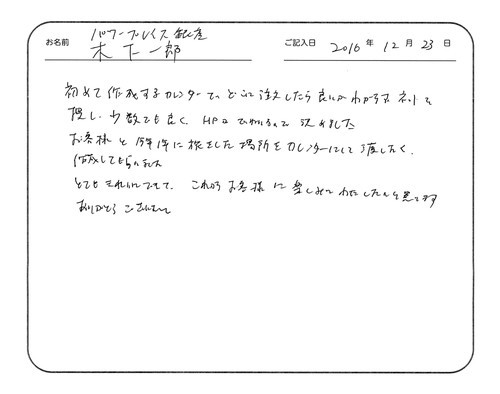 パワープレイス銀座
お名前 木下一郎 ご記入日 2016 年 12 月 23 日
初めて作成するカレンダーで、どこに注文したら良いかわからず ネットで
探し、少数でも良く、HPも
お客様と今年1年に旅をした場所をカレンダーにして渡したく、
作成してもらいました
とてもきれいにできて、これからお客様に楽しみてわたしたいと思います
ありがとうございました